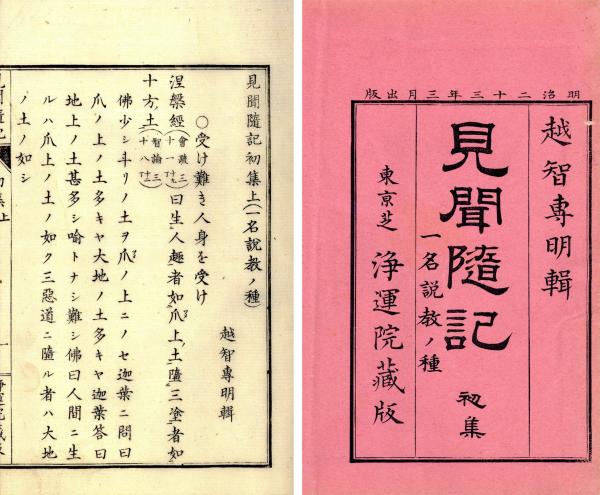 明治二十三年三月出版
越智專明輯
見聞隨記 初集
一名説教ノ種
東京芝 淨運院藏版
見聞隨記初集上(一名説教ノ種)
越智專明輯
○受け難き人身を受け
涅槃經(會疏三十一)曰生人趣者如爪上ノ土墮三塗者如
十方ノ土(智論三十八)
佛少シ斗リノ土ヲ爪ノ上ニノセ迦葉ニ問曰
爪ノ上ノ土多キヤ大地ノ土多キヤ迦葉答曰
地上ノ土甚多シ喻トナシ難シ佛曰人間ニ生
ルハ爪上ノ土ノ如ク三惡道ニ墮ル者ハ大地
ノ土ノ如シ
初集上